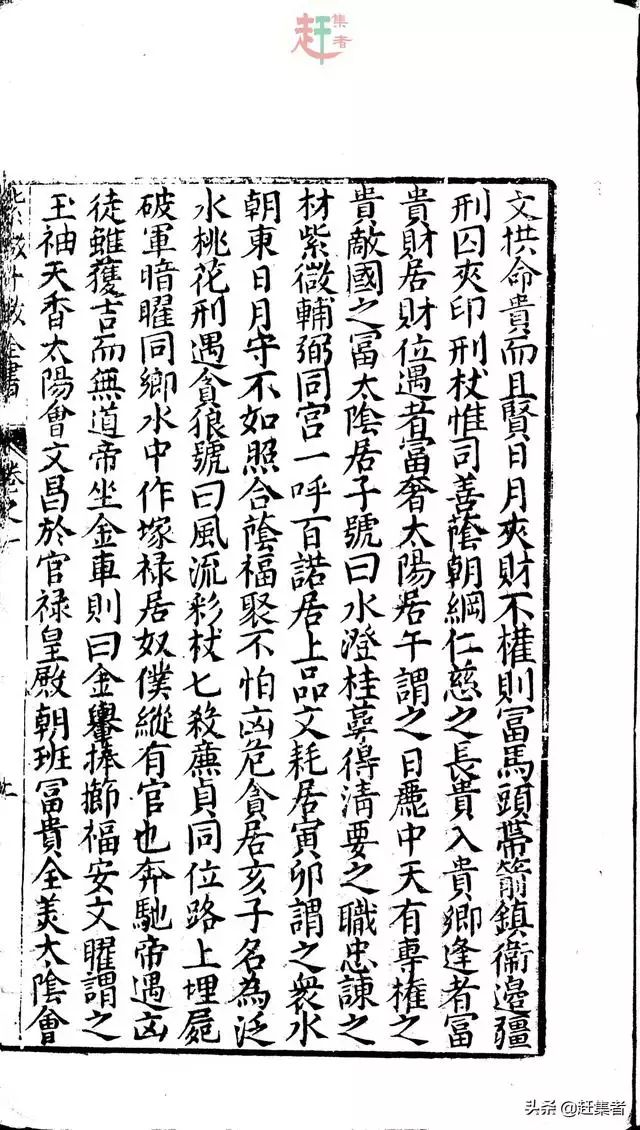 赶集者
文拱命貴而且賢日月夾財不權則冨馬頭帶箭鎮衛邊疆
刑囚夾印刑杖惟司善蔭朝綱仁慈之長貴入貴鄉逢者冨
貴財居財位遇者富奢太陽居午謂之日麗中天有專權之
貴敵國之冨太陰居子號曰水澄桂萼得清要之職忠諫之
材紫微輔弼同宫一呼百諾居上品文耗居寅卯謂之衆水
朝東日月守不如照合蔭福聚不怕凶危貪居亥子名為泛
水桃花刑遇貪狼號曰風流彩杖七殺廉貞同位路上埋屍
破軍暗曜同鄉水中作塚禄居奴僕縱有官也奔馳帝遇凶
徒雖獲吉而無道帝坐金車則曰金轝捧櫛福安文曜謂之
玉袖天香太陽會文昌於官禄皇殿朝班冨貴全美太陰會
微斗數全書 卷之一
头条 @赶集者